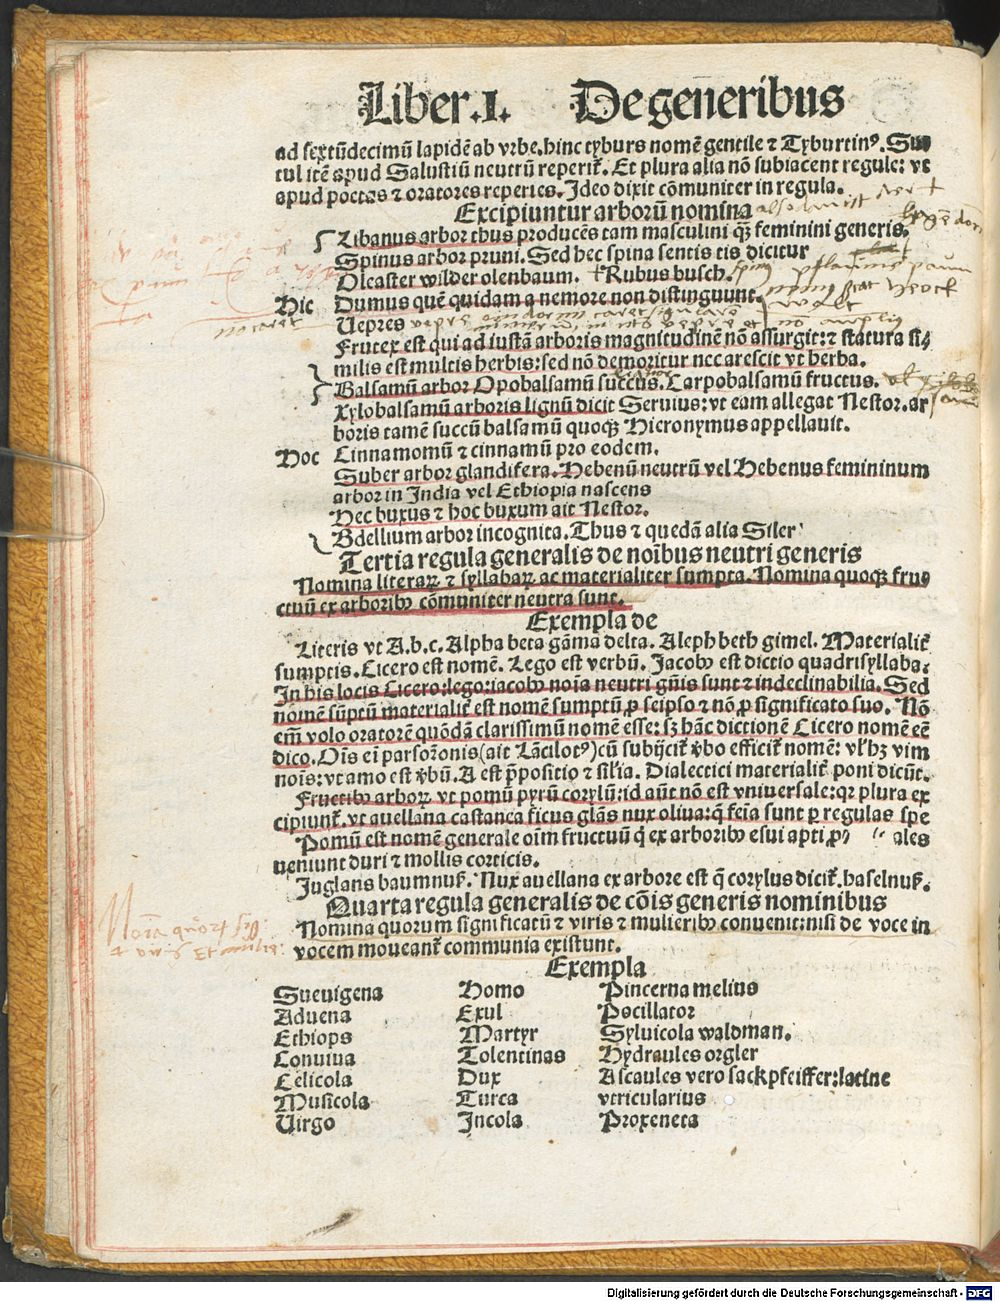 Liber .I. De generibus
ad sextūdecimū lapidē ab vrbe. hinc tyburs nomē gentile ⁊ Tyburtinꝰ. Su⸗
tul itē apud Salustiū neutrū reperit᷑. Et plura alia nō subiacent regule: vt
apud poetas ⁊ oratores reperies. Ideo dixit cōmuniter in regula.
Excipiuntur arborū nomina
Libanus arbor thus producēs tam masculini qꝫ feminini generis.
Spinus arbor pruni. Sed hec spina sentis tis dicitur
Oleaster wilder olenbaum. Rubus busch.
Hic Dumus quē quidam a nemore non distinguunt.
Uepres
Frutex est qui ad iustā arboris magnitudinē nō assurgit: ⁊ statura si⸗
milis est multis herbis: sed nō demoritur nec arescit vt herba.
Balsamū arbor Opobalsamū succus. Carpobalsamū fructus.
Xylobalsamū arboris lignū dicit Seruius: vt eam allegat Nestor. ar
boris tamē succū balsamū quoqꝫ Hieronymus appellauit.
Hoc Cinnamomū ⁊ cinnamū pro eodem.
Suber arbor glandifera. Hebenū neutrū vel Hebenus femininum
arbor in India vel Ethiopia nascens
Hec buxus ⁊ hoc buxum ait Nestor.
Bdellium arbor incognita. Thus ⁊ quedā alia Siler
Tertia regula generalis de noībus neutri generis
Nomina literaꝝ ⁊ syllabaꝝ ac materialiter sumpta. Nomina quoqꝫ fru⸗
ctuū ex arboribꝰ cōmuniter neutra sunt.
Exempla de
Literis vt A.b.c. Alpha beta gāma delta. Aleph beth gimel. Materialit᷑
sumptis. Cicero est nomē. Lego est verbū. Jacobꝰ est dictio quadrisyllaba.
In his locis Cicero: lego: iacobꝰ noīa neutri gn̄is sunt ⁊ indeclinabilia. Sed
nomē sūptū materialit᷑ est nomē sumptū ꝓ seipso ⁊ nō ꝓ significato suo. Nō
em̄ volo oratorē quōdā clarissimū nomē esse: sꝫ hāc dictionē Cicero nomē eē
dico. Oīs em̄ pars orōnis (ait Lācilotꝰ) cū subijcit᷑ ꝟbo efficit᷑ nomē: vl̓ hꝫ vim
noīs: vt amo est ꝟbū. A est p̄positio ⁊ sil̓ia. Dialectici materialit᷑ poni dicūt.
Fructibꝰ arboꝝ vt pomū pyrū corylū: id aūt nō est vniuersale: qꝛ plura ex
cipiunt᷑. vt auellana castanea ficus glās nux oliua: q̄ feīa sunt ꝑ regulas spe
Pomū est nomē generale oīm fructuū q̇ ex arboribꝰ esui apti ꝓ⸗ ales
ueniunt duri ⁊ mollis corticis.
Juglans baumnuß. Nux auellana ex arbore est q̄ corylus dicit᷑. haselnuß.
Quarta regula generalis de cōis generis nominibus
Nomina quorum significatū ⁊ viris ⁊ mulieribꝰ conuenit: nisi de voce in
vocem moueant᷑ communia existunt.
Exempla
Sueuigena Homo Pincerna melius
Aduena Exul Pocillator
Ethiops Martyr Syluicola waldman.
Conuiua Tolentinas Hydraules orgler
Celicola Dux Ascaules vero sackpfeiffer: latine
Musicola Turca vtricularius
Uirgo Incola Proxeneta
Digitalisierung gefördert durch die Deutsche Forschungsgemeinschaft - DFG